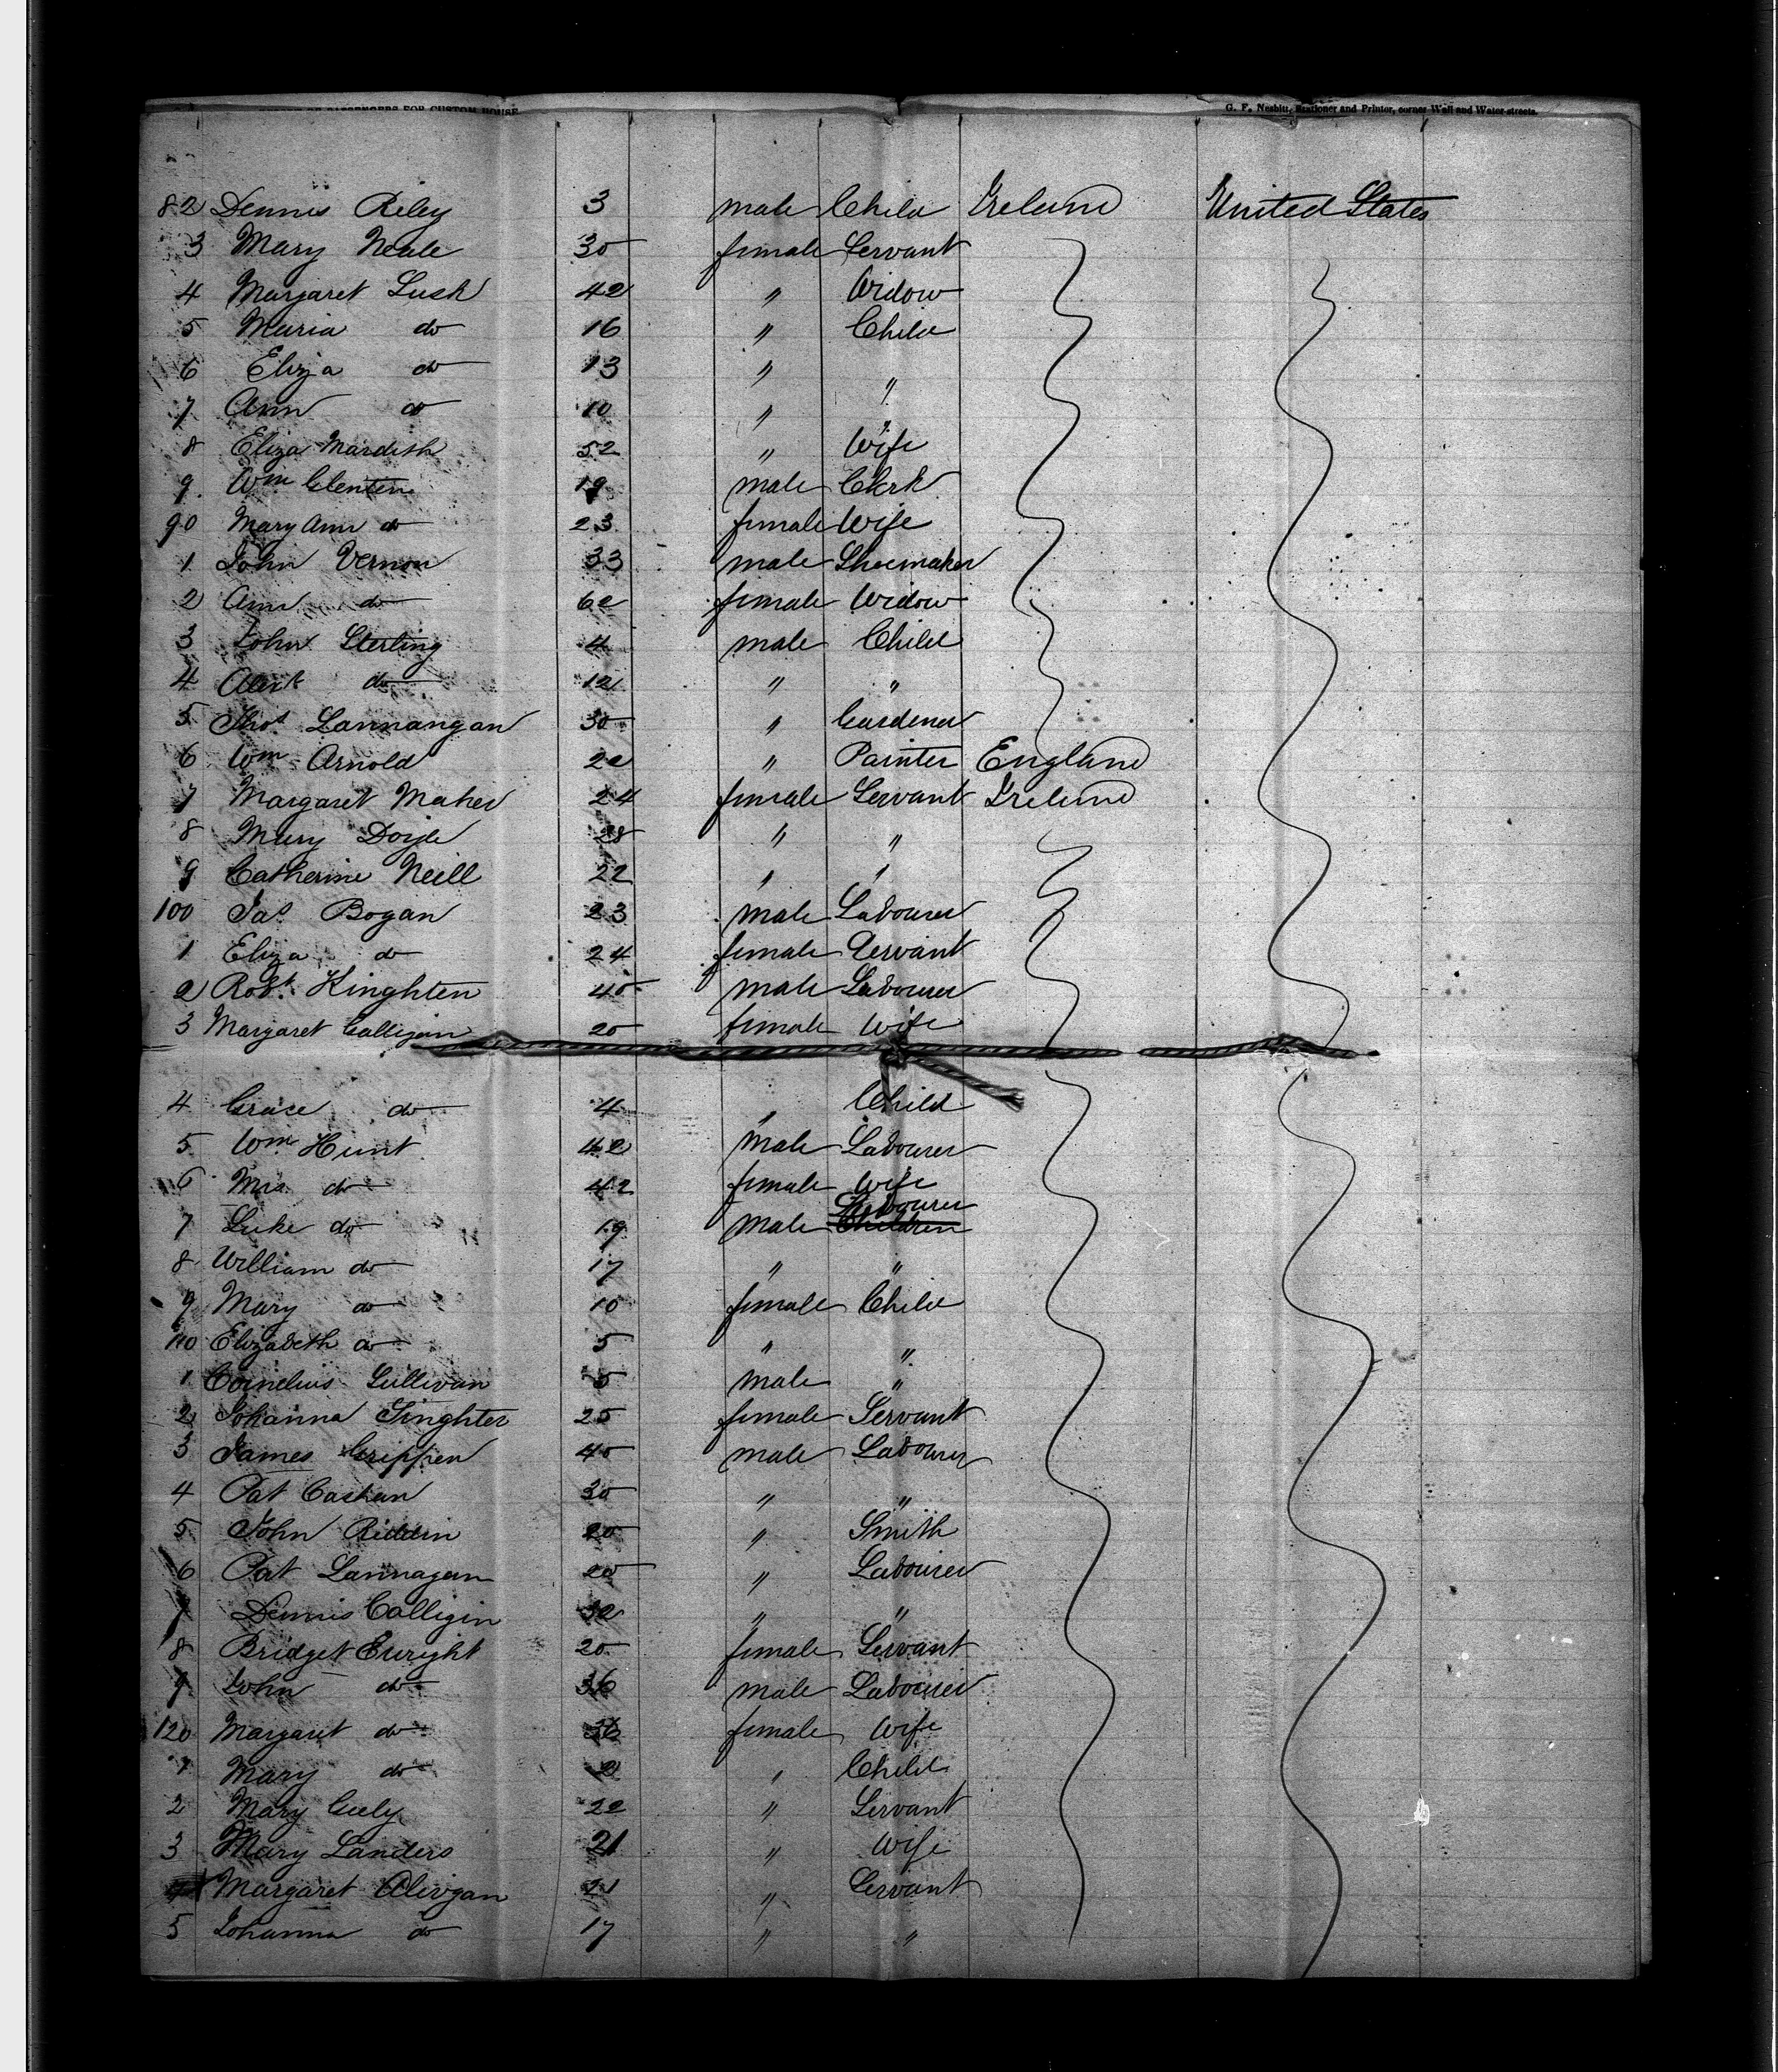 PASSENGERS FOR CUSTOM HOUSE
G. F. Nesbitt, Stationer and Printer, corner Wall and Water streets.
82 Dennis Riley 3 male Child Ireland United States
3 Mary Neale 30 female Servant
4 Margaret Lusk 42 " Widow
5 Maria do 16 " Child
6 Eliza do 13 " "
7 Ann do 10 " "
8 Eliza Mardith 52 " Wife
9 Wm Clenten 19 male Clerk
90 Mary Ann do 23 female Wife
1 John Vernon 33 male Shoemaker
2 Ann do 60 female Widow
3 John Sterling 4 male Child
4 do 12 " "
5 Thos Lannangan 30 " Gardener
6 Wm Arnold 20 " Painter England
7 Margaret Maher 24 female Servant Ireland
8 Mary Doyle 28 " "
9 Catherine Neill 22 " "
100 Jas Bogan 23 male Labourer
1 Eliza do 24 female Servant
2 Robt Kinghten 40 male Labourer
3 Margaret Calligan 20 female Wife
4 Grace do 4 " Child
5 Wm Hunt 42 male Labourer
6 Mrs do 42 female Wife
7 Luke do 19 male Labourer Children
8 William do 17 " "
9 Mary do 10 female Child
110 Elizabeth do 5 " "
1 Cornelius Sullivan 5 male "
2 Johanna 25 female Servant
3 James Crippen 40 male Labourer
4 Pat Cashan 30 " "
5 John Riddin 20 " Smith
6 Pat Lannagan 20 " Labourer
7 Dennis Calligin 30 " "
8 Bridget Enright 20 female Servant
9 John do 36 male Labourer
120 Margaret do 36 female Wife
1 Mary do 2 " Child
2 Mary 22 " Servant
3 Mary Landers 21 " Wife
4 Margaret 21 " Servant
5 Johanna do 17 " "